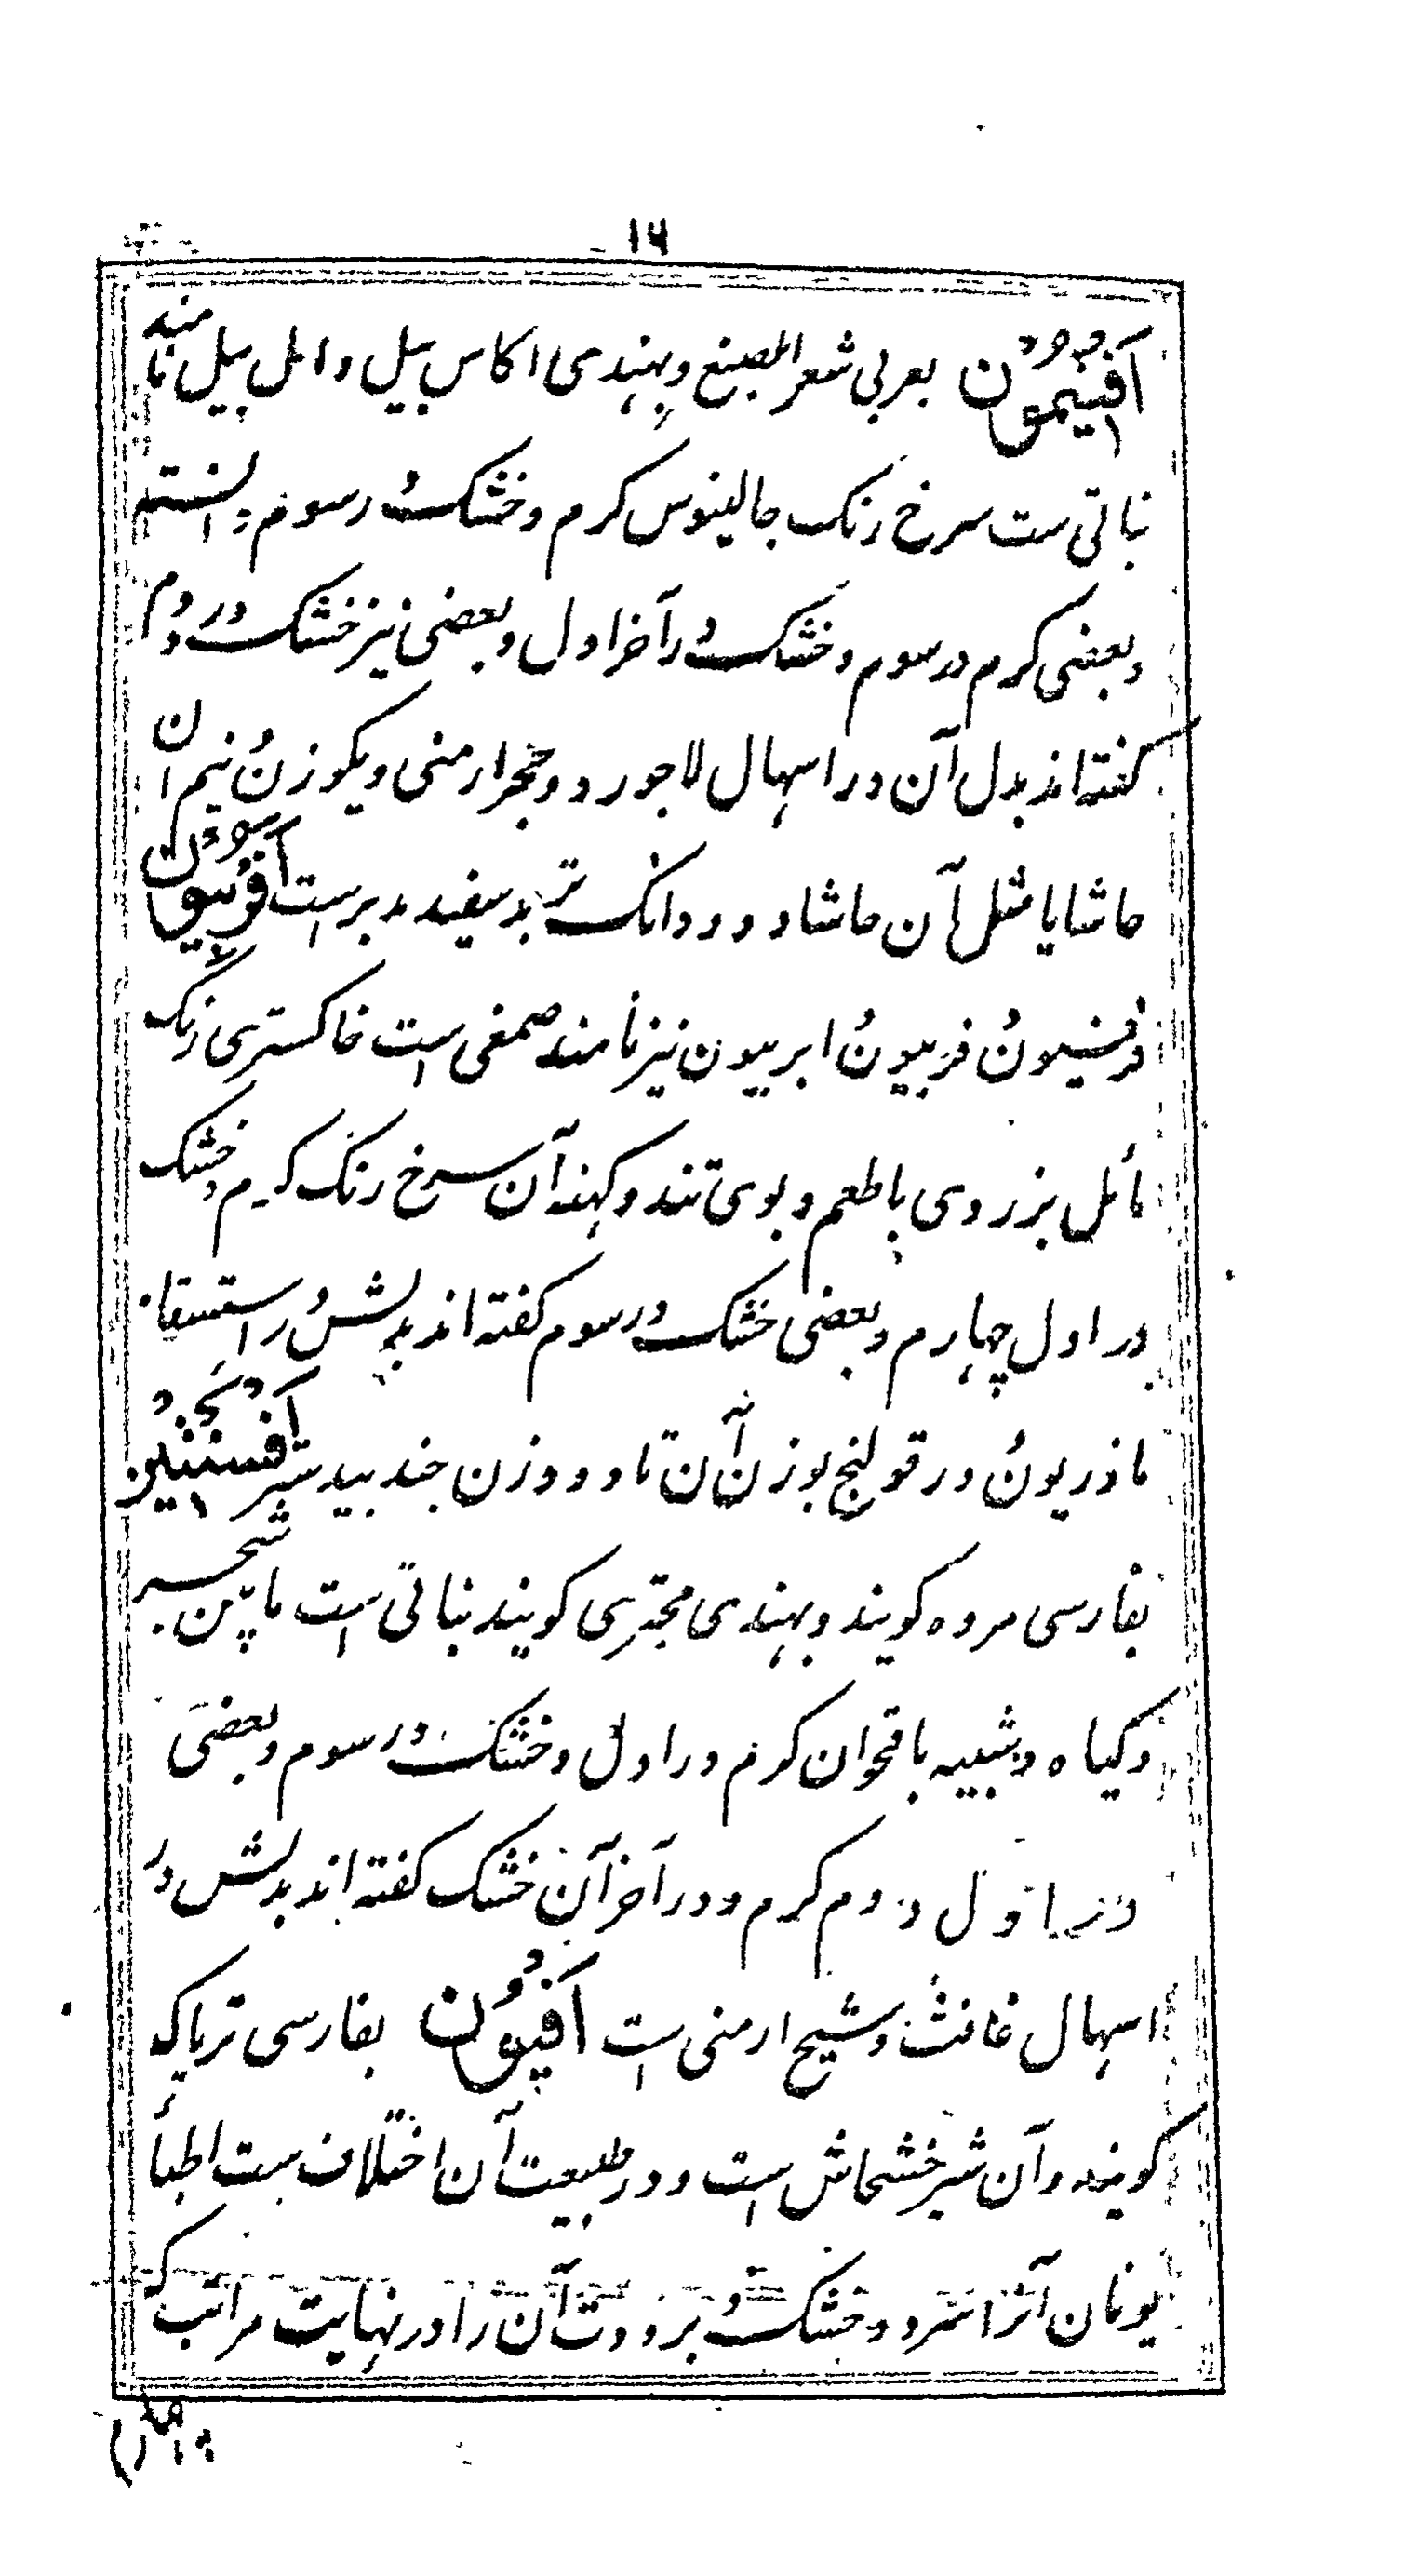 ۱۶
اَفتیمون بعربی شعر المصبغ و بهندی اکاس بیل و امل بیل نامند
نباتی ست سرخ رنک جالینوس کرم و خشک در سوم دانسته
و بعضی کرم در سوم و خشک در آخر اول و بعضی نیز خشک در دوم
کفته اند بدل آن در اسهال لاجورد و حجر ارمنی و یکوزن نیم ان
حاشا یا مثل آن حاشا و دو دانک تربد سفید مدبر است اَفربیون
فرفیون فربیون ابربیون نیز نامند صمغی است خاکستری رنک
مائل بزردی با طعم و بوی تند و کهنه آن سرخ رنک کرم و خشک
در اول چهارم و بعضی خشک در سوم کفته اند بدلش در استسقا
ماذریون در قولنج بوزن آن تا دو وزن جند بیدستر اَفسنتین
بفارسی مروه کویند و بهندی مجتری کویند نباتی است مابین شجر
و کیاه و شبیه باقحوان کرم در اول و خشک در سوم و بعضی
در اول دوم کرم و در آخر آن خشک کفته اند بدلش در
اسهال غافث و شیح ارمنی است اَفیون بفارسی تریاک
کویند و آن شیر خشخاش است و در طبیعت آن اختلاف ست اطبأ
یونان آنرا سرد و خشک و برودت آن را در نهایت مراتب که
چهارم